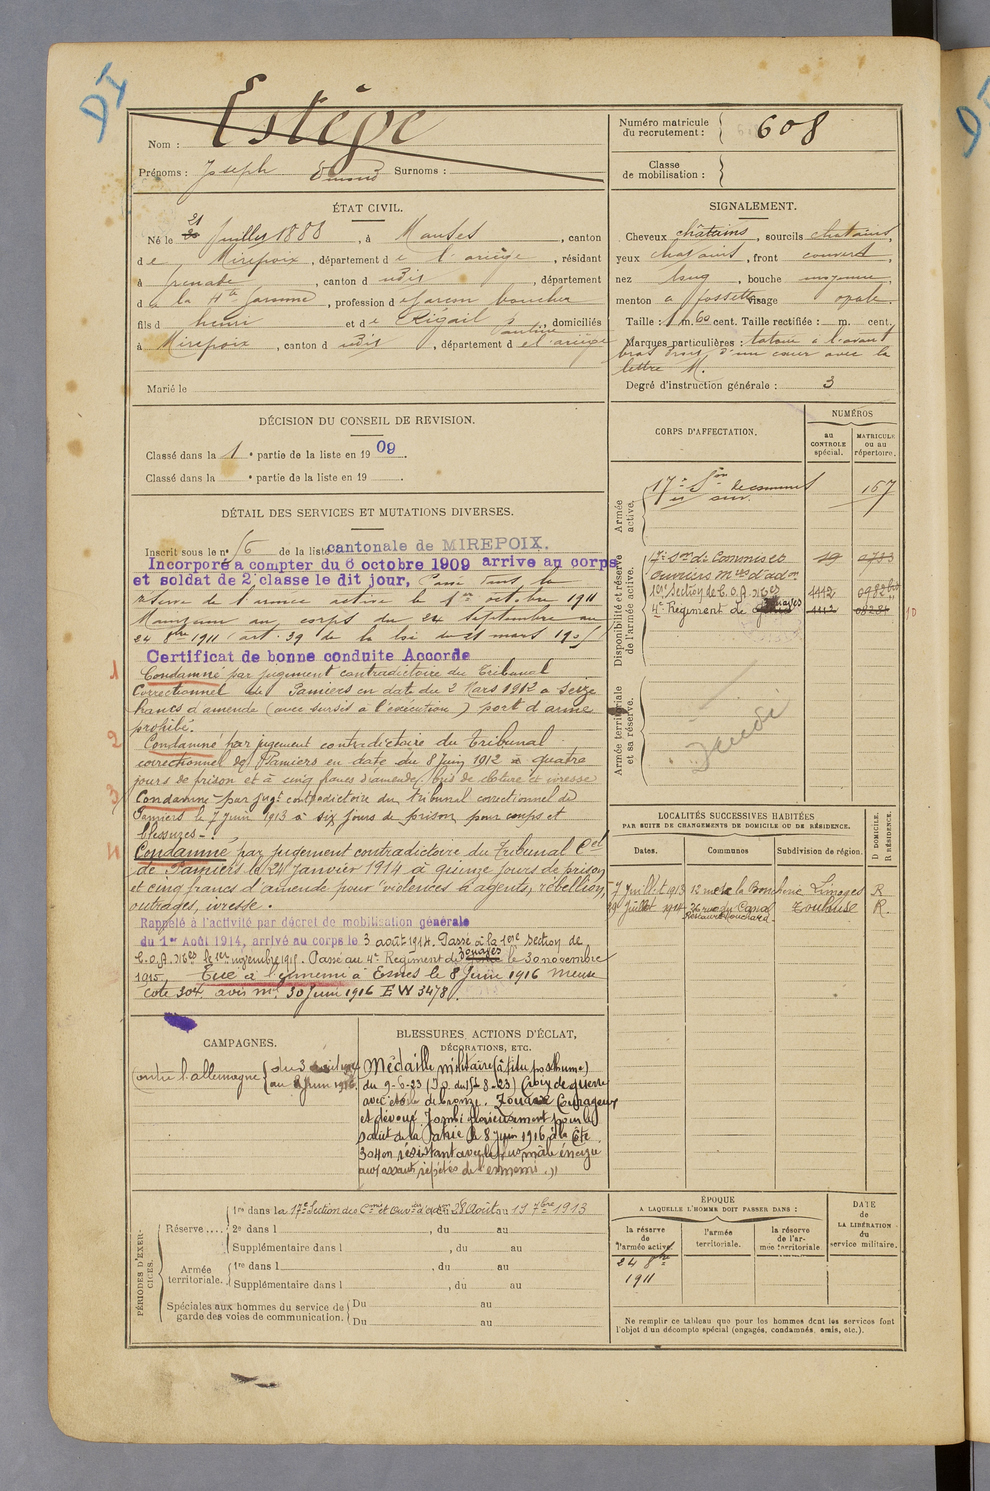 DI
Estège
Nom :
Prénoms : Joseph Edmond Surnoms :
Numéro matricule du recrutement : 608
Classe de mobilisation :
ÉTAT CIVIL.
21
Né le 20 Juillet 1888, à Manses, canton
de Mirepoix, département de l'ariège, résidant
à grenade, canton d udit, département
d e la Hte garonne, profession de garçon boucher
fils d henri et de Rigail Pauline, domiciliés
à Mirepoix, canton d udit, département de l'ariège
Marié le
SIGNALEMENT.
Cheveux châtains, sourcils chatains,
yeux chatains, front couvert,
nez long, bouche moyenne,
menton a fossette visage ovale.
Taille : 1 m. 60 cent. Taille rectifiée : m. cent.
Marques particulières : tatoué à l'avant
bras droit d'un cœur avec la
lettre M.
Degré d'instruction générale : 3
DÉCISION DU CONSEIL DE REVISION.
Classé dans la 1e partie de la liste en 1909.
Classé dans la e partie de la liste en 19 .
CORPS D'AFFECTATION.
NUMÉROS
au CONTROLE spécial.
MATRICULE ou au répertoire.
Armée active.
17e Son de commis et ouv. 167
Disponibilité et réserve de l'armée active.
17e Son de Commis et 19 0713
Ouvriers Mres d'adon
10e Section de C.O.A. Mres 4442 0982bis
4e Régiment de Zouaves 4442 08284
10
Armée territoriale et sa réserve.
DÉTAIL DES SERVICES ET MUTATIONS DIVERSES.
Inscrit sous le n° 16 de la liste cantonale de MIREPOIX.
Incorporé à compter du 8 octobre 1909 arrivé au corps
et soldat de 2e classe le dit jour, Passé dans la
réserve de l'armée active le 1er octobre 1911
Maintenu au corps du 24 septembre au
24 8bre 1911 (art. 39 de la loi du 21 mars 1905)
Certificat de bonne conduite Accordé
1
Condamné par jugement contradictoire du Tribunal
Correctionnel de Pamiers en date du 2 Mars 1912 à seize
francs d'amende (avec sursis à l'exécution) port d'arme
prohibé.
2
Condamné par jugement contradictoire du Tribunal
correctionnel de Pamiers en date du 8 juin 1912 à quatre
jours de prison et à cinq francs d'amende, bris de cloture et ivresse
3
Condamné par jugt contradictoire du tribunal correctionnel de
Pamiers le 7 juin 1913 à six jours de prison pour coups et
blessures.
4
Condamné par jugement contradictoire du Tribunal Cel
de Pamiers le 24 janvier 1914 à quinze jours de prison
et cinq francs d'amende pour violences à agents, rébellion,
outrages, ivresse.
Rappelé à l'activité par décret de mobilisation générale
du 1er Août 1914, arrivé au corps le 3 août 1914. Passé à la 10e section de
C.O.A. Mres le 1er novembre 1915. Passé au 4e Régiment de Zouaves le 30 novembre
1915. Tué à l'ennemi à Esnes le 8 Juin 1916 Meuse
cote 304 avis ml 30 Juin 1916 EW 3478.
LOCALITÉS SUCCESSIVES HABITÉES
PAR SUITE DE CHANGEMENTS DE DOMICILE OU DE RÉSIDENCE.
Dates. Communes Subdivision de région. D DOMICILE. R RÉSIDENCE.
7 Juillet 1913 12 rue de la Boucherie Limoges R
Juillet 1914 36 rue du Canal Toulouse R.
CAMPAGNES.
Contre l'allemagne du 3 août 1914
au 8 Juin 1916
BLESSURES, ACTIONS D'ÉCLAT,
DÉCORATIONS, ETC.
Médaille militaire (à titre posthume)
du 9-6-23 (J.O. du 8-23) Croix de guerre
avec étoile de bronze. Zouave Courageux
et dévoué. Tombé glorieusement pour le
salut de la Patrie le 8 juin 1916, à la Côte
304 en résistant avec la plus mâle énergie
aux assauts répétés de l'ennemi. »
PÉRIODES D'EXERCICES.
Réserve....
1re dans la 17e Section des Cmis et Ouvrs d'adon du 28 Août au 15 7bre 1913
2e dans l , du au
Supplémentaire dans l , du au
Armée territoriale.
1re dans l , du au
Supplémentaire dans l , du au
Spéciales aux hommes du service de garde des voies de communication.
Du au
Du au
ÉPOQUE
A LAQUELLE L'HOMME DOIT PASSER DANS :
la réserve de l'armée active
l'armée territoriale.
la réserve de l'armée territoriale.
DATE de LA LIBÉRATION du service militaire.
24 8bre
1911
Ne remplir ce tableau que pour les hommes dont les services font
l'objet d'un décompte spécial (engagés, condamnés, omis, etc.).